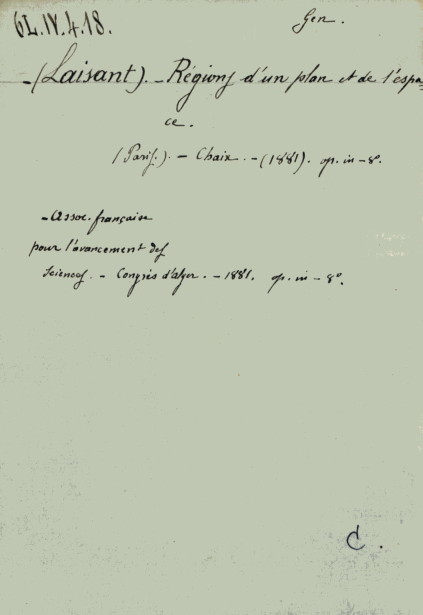 6L.IV.4.18.
Gen.
-(Laisant).-Régions d'un plan et de l'espa-
ce.
(Paris.).-Chaix.-(1881). op. in-8º.
-Assoc. française
pour l'avancement des
Sciences.-Congrès d'Alger.-1881. op. in-8º.
C.